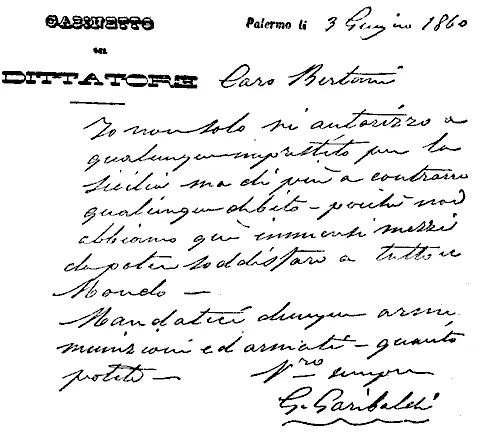 GABINETTO
DEL
DITTATORE
Palermo li 3 Giugno 1860
Caro Bertani
Io non solo vi autorizzo a
qualunque imprestito per la
Sicilia ma di più a contrarre
qualunque debito – poiché noi
abbiamo quì immensi mezzi
da poter soddisfare a tutto il
Mondo –
Mandateci dunque armi
munizioni ed armati – quanto
potete –
Vro sempre
G. Garibaldi